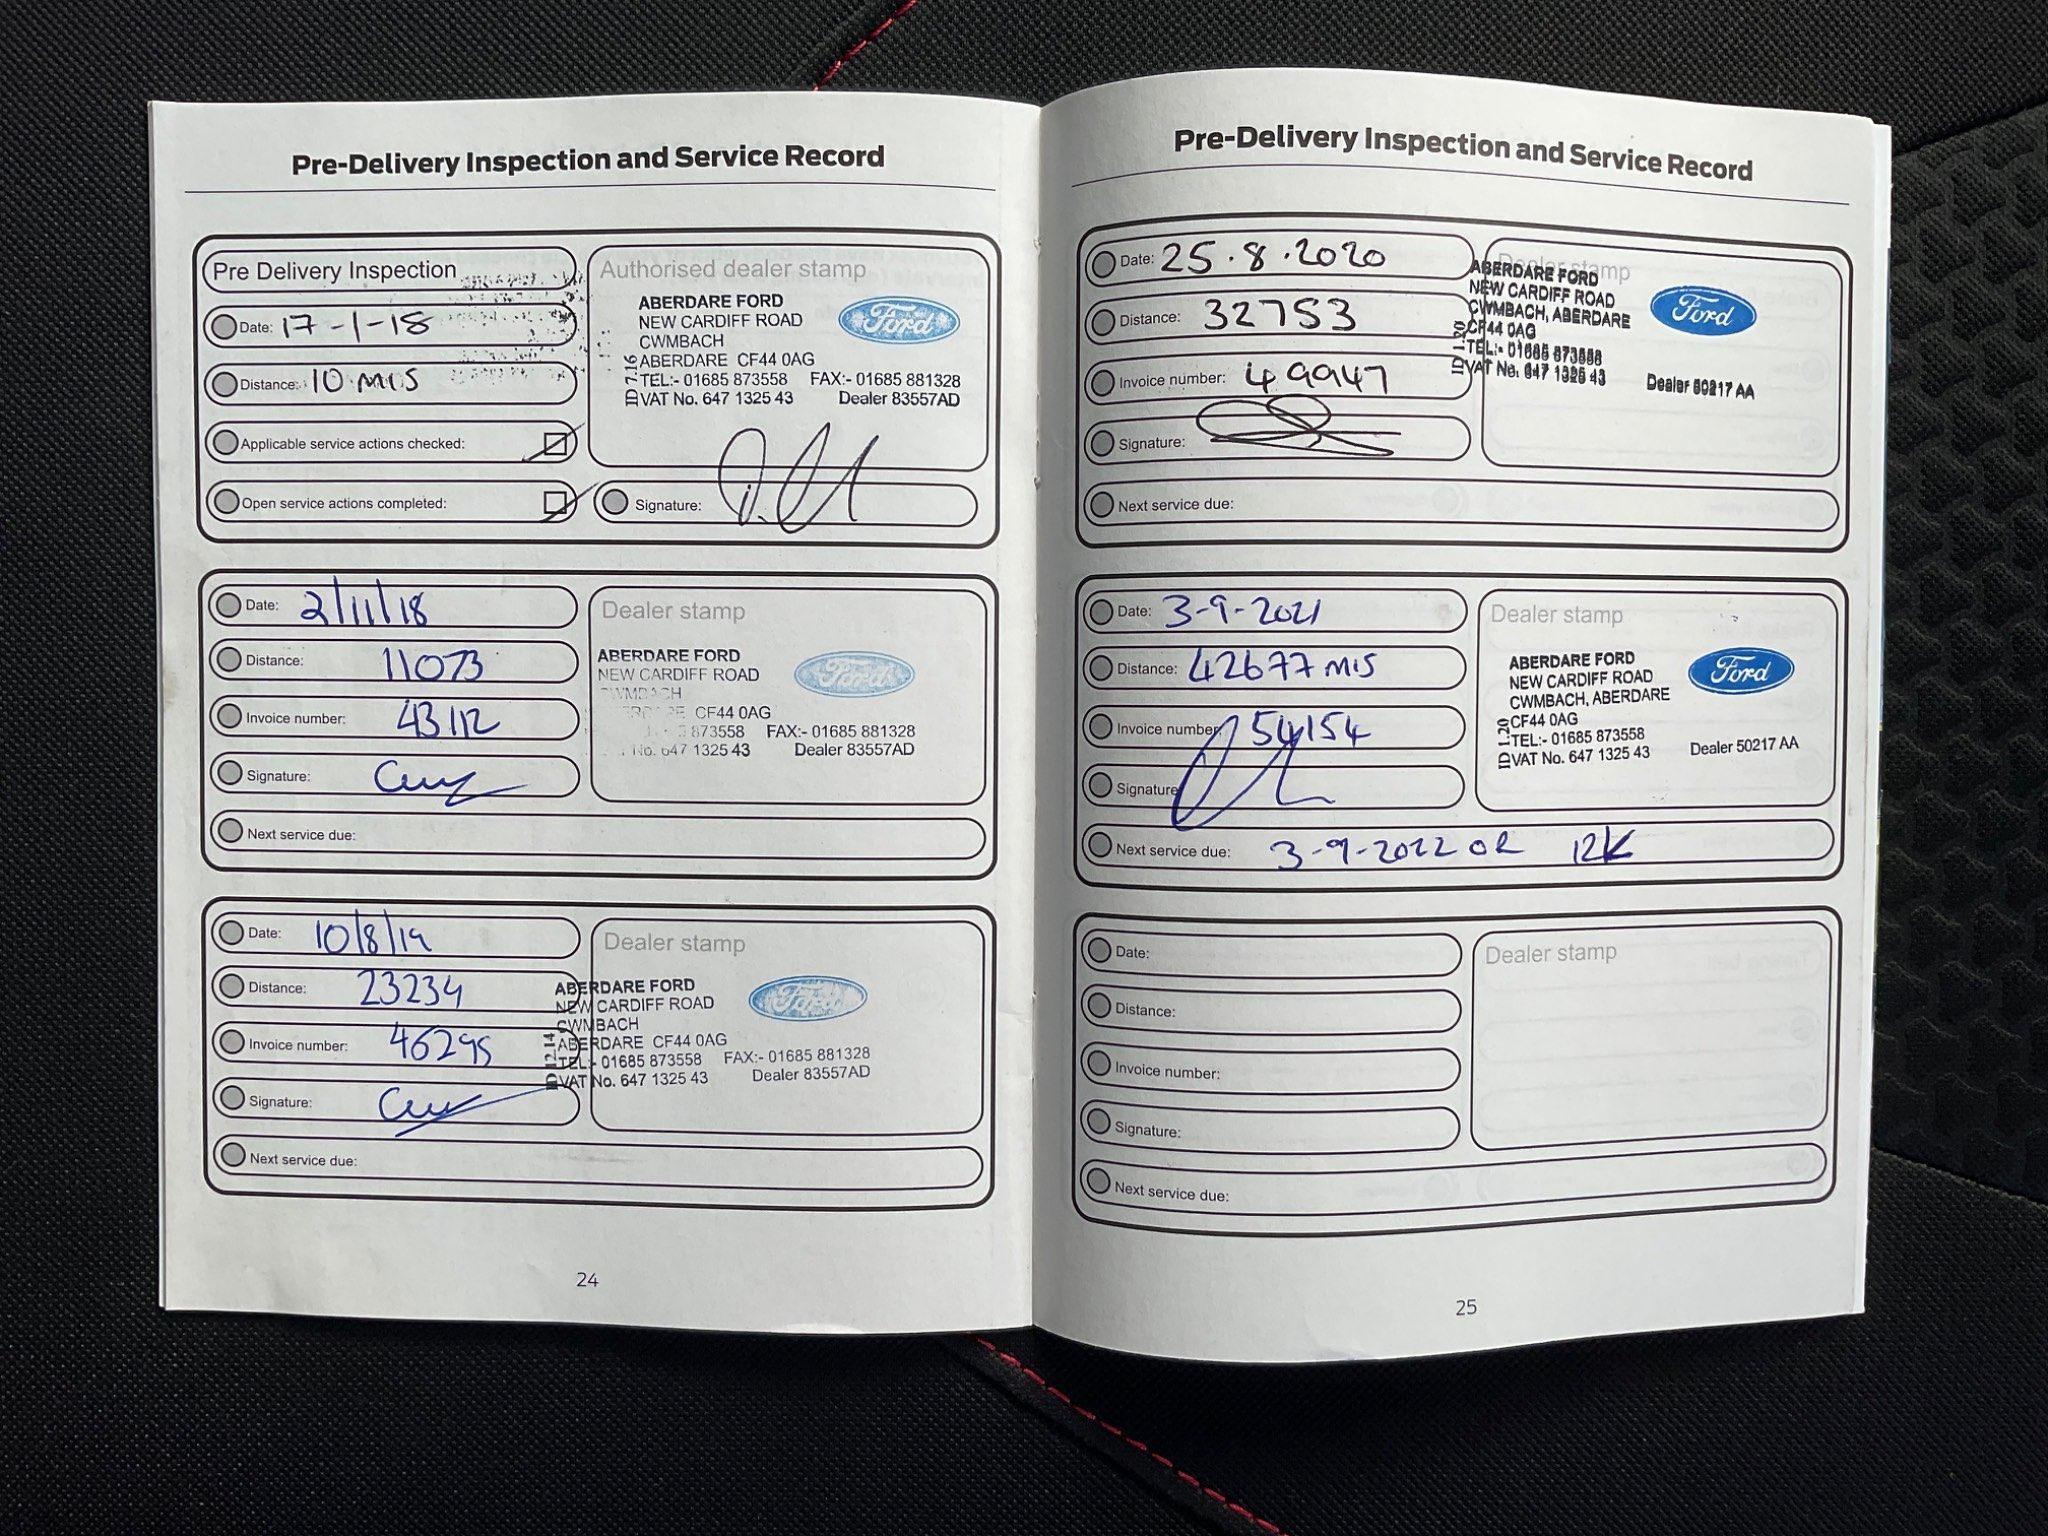 Pre-Delivery Inspection and Service Record
Pre Delivery Inspection
Date: 17-1-18
Distance: 10 MIS
Applicable service actions checked:
Open service actions completed:
Authorised dealer stamp
ABERDARE FORD
NEW CARDIFF ROAD
CWMBACH
ABERDARE CF44 0AG
TEL:- 01685 873558 FAX:- 01685 881328
VAT No. 647 1325 43 Dealer 83557AD
ID 7.16
Ford
Signature:
Date: 2/11/18
Distance: 11073
Invoice number: 43112
Signature:
Next service due:
Dealer stamp
ABERDARE FORD
NEW CARDIFF ROAD
CWMBACH
CF44 0AG
873558 FAX:- 01685 881328
No. 647 1325 43 Dealer 83557AD
Ford
Date: 10/8/19
Distance: 23234
Invoice number: 46295
Signature:
Next service due:
Dealer stamp
ABERDARE FORD
NEW CARDIFF ROAD
CWMBACH
ABERDARE CF44 0AG
TEL:- 01685 873558 FAX:- 01685 881328
VAT No. 647 1325 43 Dealer 83557AD
ID 12.14
Ford
24
Pre-Delivery Inspection and Service Record
Date: 25.8.2020
Distance: 32753
Invoice number: 49947
Signature:
Next service due:
Dealer stamp
ABERDARE FORD
NEW CARDIFF ROAD
CWMBACH, ABERDARE
CF44 0AG
TEL:- 01685 873558
VAT No. 647 1325 43 Dealer 50217 AA
ID 1.20
Ford
Date: 3-9-2021
Distance: 42677 MIS
Invoice number: 54154
Signature
Next service due: 3-9-2022 OR 12K
Dealer stamp
ABERDARE FORD
NEW CARDIFF ROAD
CWMBACH, ABERDARE
CF44 0AG
TEL:- 01685 873558
VAT No. 647 1325 43 Dealer 50217 AA
ID 1.20
Ford
Date:
Distance:
Invoice number:
Signature:
Next service due:
Dealer stamp
25